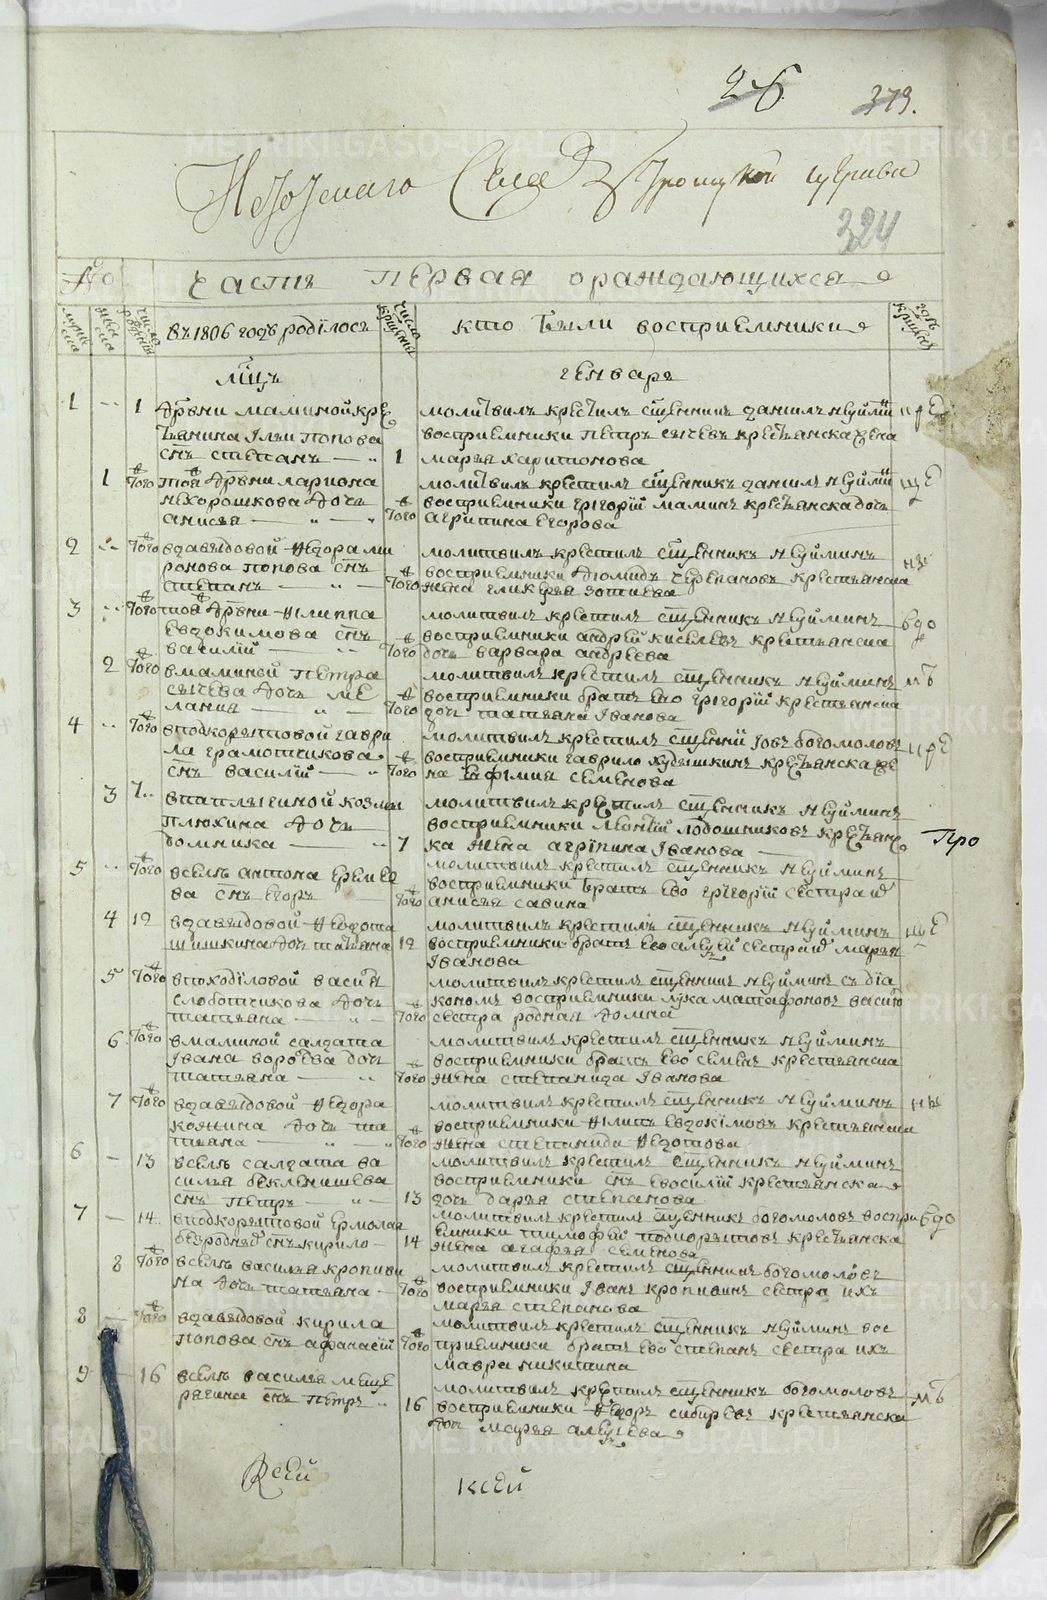 26
379.
Села Троицкой церкви
324
№
часть первая о раждающихся
въ 1806 годѣ родїлось
кто были восприемники
мцъ
генварь
1 1 дрвни маминой кре
стьянина Ільи попова
снъ степанъ 1
молитвилъ крестилъ сщенникъ данилъ нѣуйминъ
восприемники петръ сычевъ крестьянска жена
марья харитонова
1 того той дрвни лариона
нѣхорошкова дочь
анисья того
молитвилъ крестилъ сщенникъ данилъ нѣуйминъ
восприемники грігорїй маминъ крестьянска дочь
агрипина егорова
2 того вдавыдовой ѳедора ми
ронова попова снъ
степанъ того
молитвилъ крестилъ сщенникъ нѣуйминъ
восприемники диомидъ черепановъ крестьянска
жена гликерья зотиева
3 того той дрвни филиппа
Евдокимова снъ
василїй того
молитвилъ крестилъ сщенникъ нѣуйминъ
восприемники андрей киселевъ крестьянска
дочь варвара андреева
2 того вмаминой петра
сычева дочь ме
лания того
молитвилъ крестилъ сщенникъ нѣуйминъ
восприемники братъ ево грігорїй крестьянска
дочь татьяна Іванова
4 того вподкорытовой гаври
ла грамотчикова
снъ василїй того
молитвилъ крестилъ сщенникъ Іовъ богомоловъ
восприемники гаврило кудышкинъ крестьянска же
на ефимия семенова
3 7 козмы
плюхина дочь
домника 7
молитвилъ крестилъ сщенникъ нѣуйминъ
восприемники леонтїй лобошниковъ крестьянс
ка жена агріпина Іванова
Про
5 того вселѣ антона ереме
ва снъ егоръ того
молитвилъ крестилъ сщенникъ нѣуйминъ
восприемники братъ ево грігорїй сестра
анисья савина
4 12 вдавыдовой ѳедота
шишкина дочь татьяна 12
молитвилъ крестилъ сщенникъ нѣуйминъ
восприемники братъ ево алеѯѣй сестра марья
Іванова
5 того впоходіловой
слоботчикова дочь
татьяна того
молитвилъ крестилъ сщенникъ нѣуйминъ съ діа
кономъ восприемники лука матафоновъ
сестра родная домна
6 того вмаминой салдата
Івана воробева дочь
татьяна того
молитвилъ крестилъ сщенникъ нѣуйминъ
восприемники братъ ево семенъ крестьянска
жена степанида Іванова
7 того вдавыдовой ѳедора
конина дочь та
тьяна того
молитвилъ крестилъ сщенникъ нѣуйминъ
восприемники філипъ евдокімовъ крестьянска
жена степанида ѳедотова
6 13 вселѣ салдата ва
силья бекленишева
снъ петръ 13
молитвилъ крестилъ сщенникъ нѣуйминъ
восприемники снъ ево силїй крестьянска
дочь дарья степанова
7 14 вподкорытовой Ермолая
безродныхъ снъ кирило 14
молитвилъ крестилъ сщенникъ богомоловъ воспри
емники тимофей подкорытовъ крестьянска
жена агафья семенова
8 того вселѣ василья кропиви
на дочь татьяна того
молитвилъ крестилъ сщенникъ богомоловъ
восприемники Іванъ кропивинъ сестра ихъ
марья степанова
8 того вдавыдовой кирила
попова снъ афанасей того
молитвилъ крестилъ сщенникъ нѣуйминъ вос
приемники братъ ево степанъ сестра ихъ
мавра никитина
9 16 вселѣ василья меще
рягина снъ петръ 16
молитвилъ крестилъ сщенникъ богомоловъ
восприемники ѳедоръ сибиревъ крестьянска
дочь марья алеѯѣева
ксей
METRIKI.GASO-URAL.RU